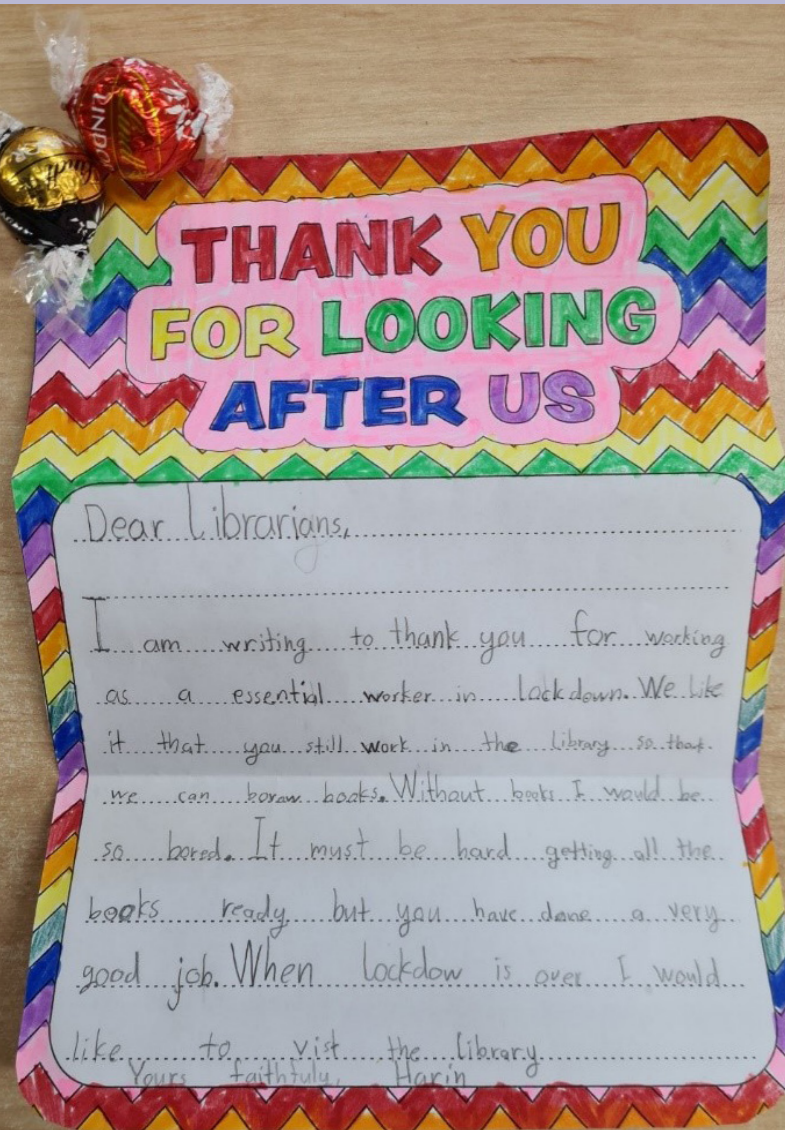 LINDOR
Lindt
THANK YOU
FOR LOOKING
AFTER US
Dear Librarians,
I am writing to thank you for working
as a essential worker in lockdown. We like
it that you still work in the library so that
we can boraw books. Without books I would be
so bored. It must be hard getting all the
books ready but you have done a very
good job. When lockdow is over I would
like to vist the library
Yours faithfuly, Harin